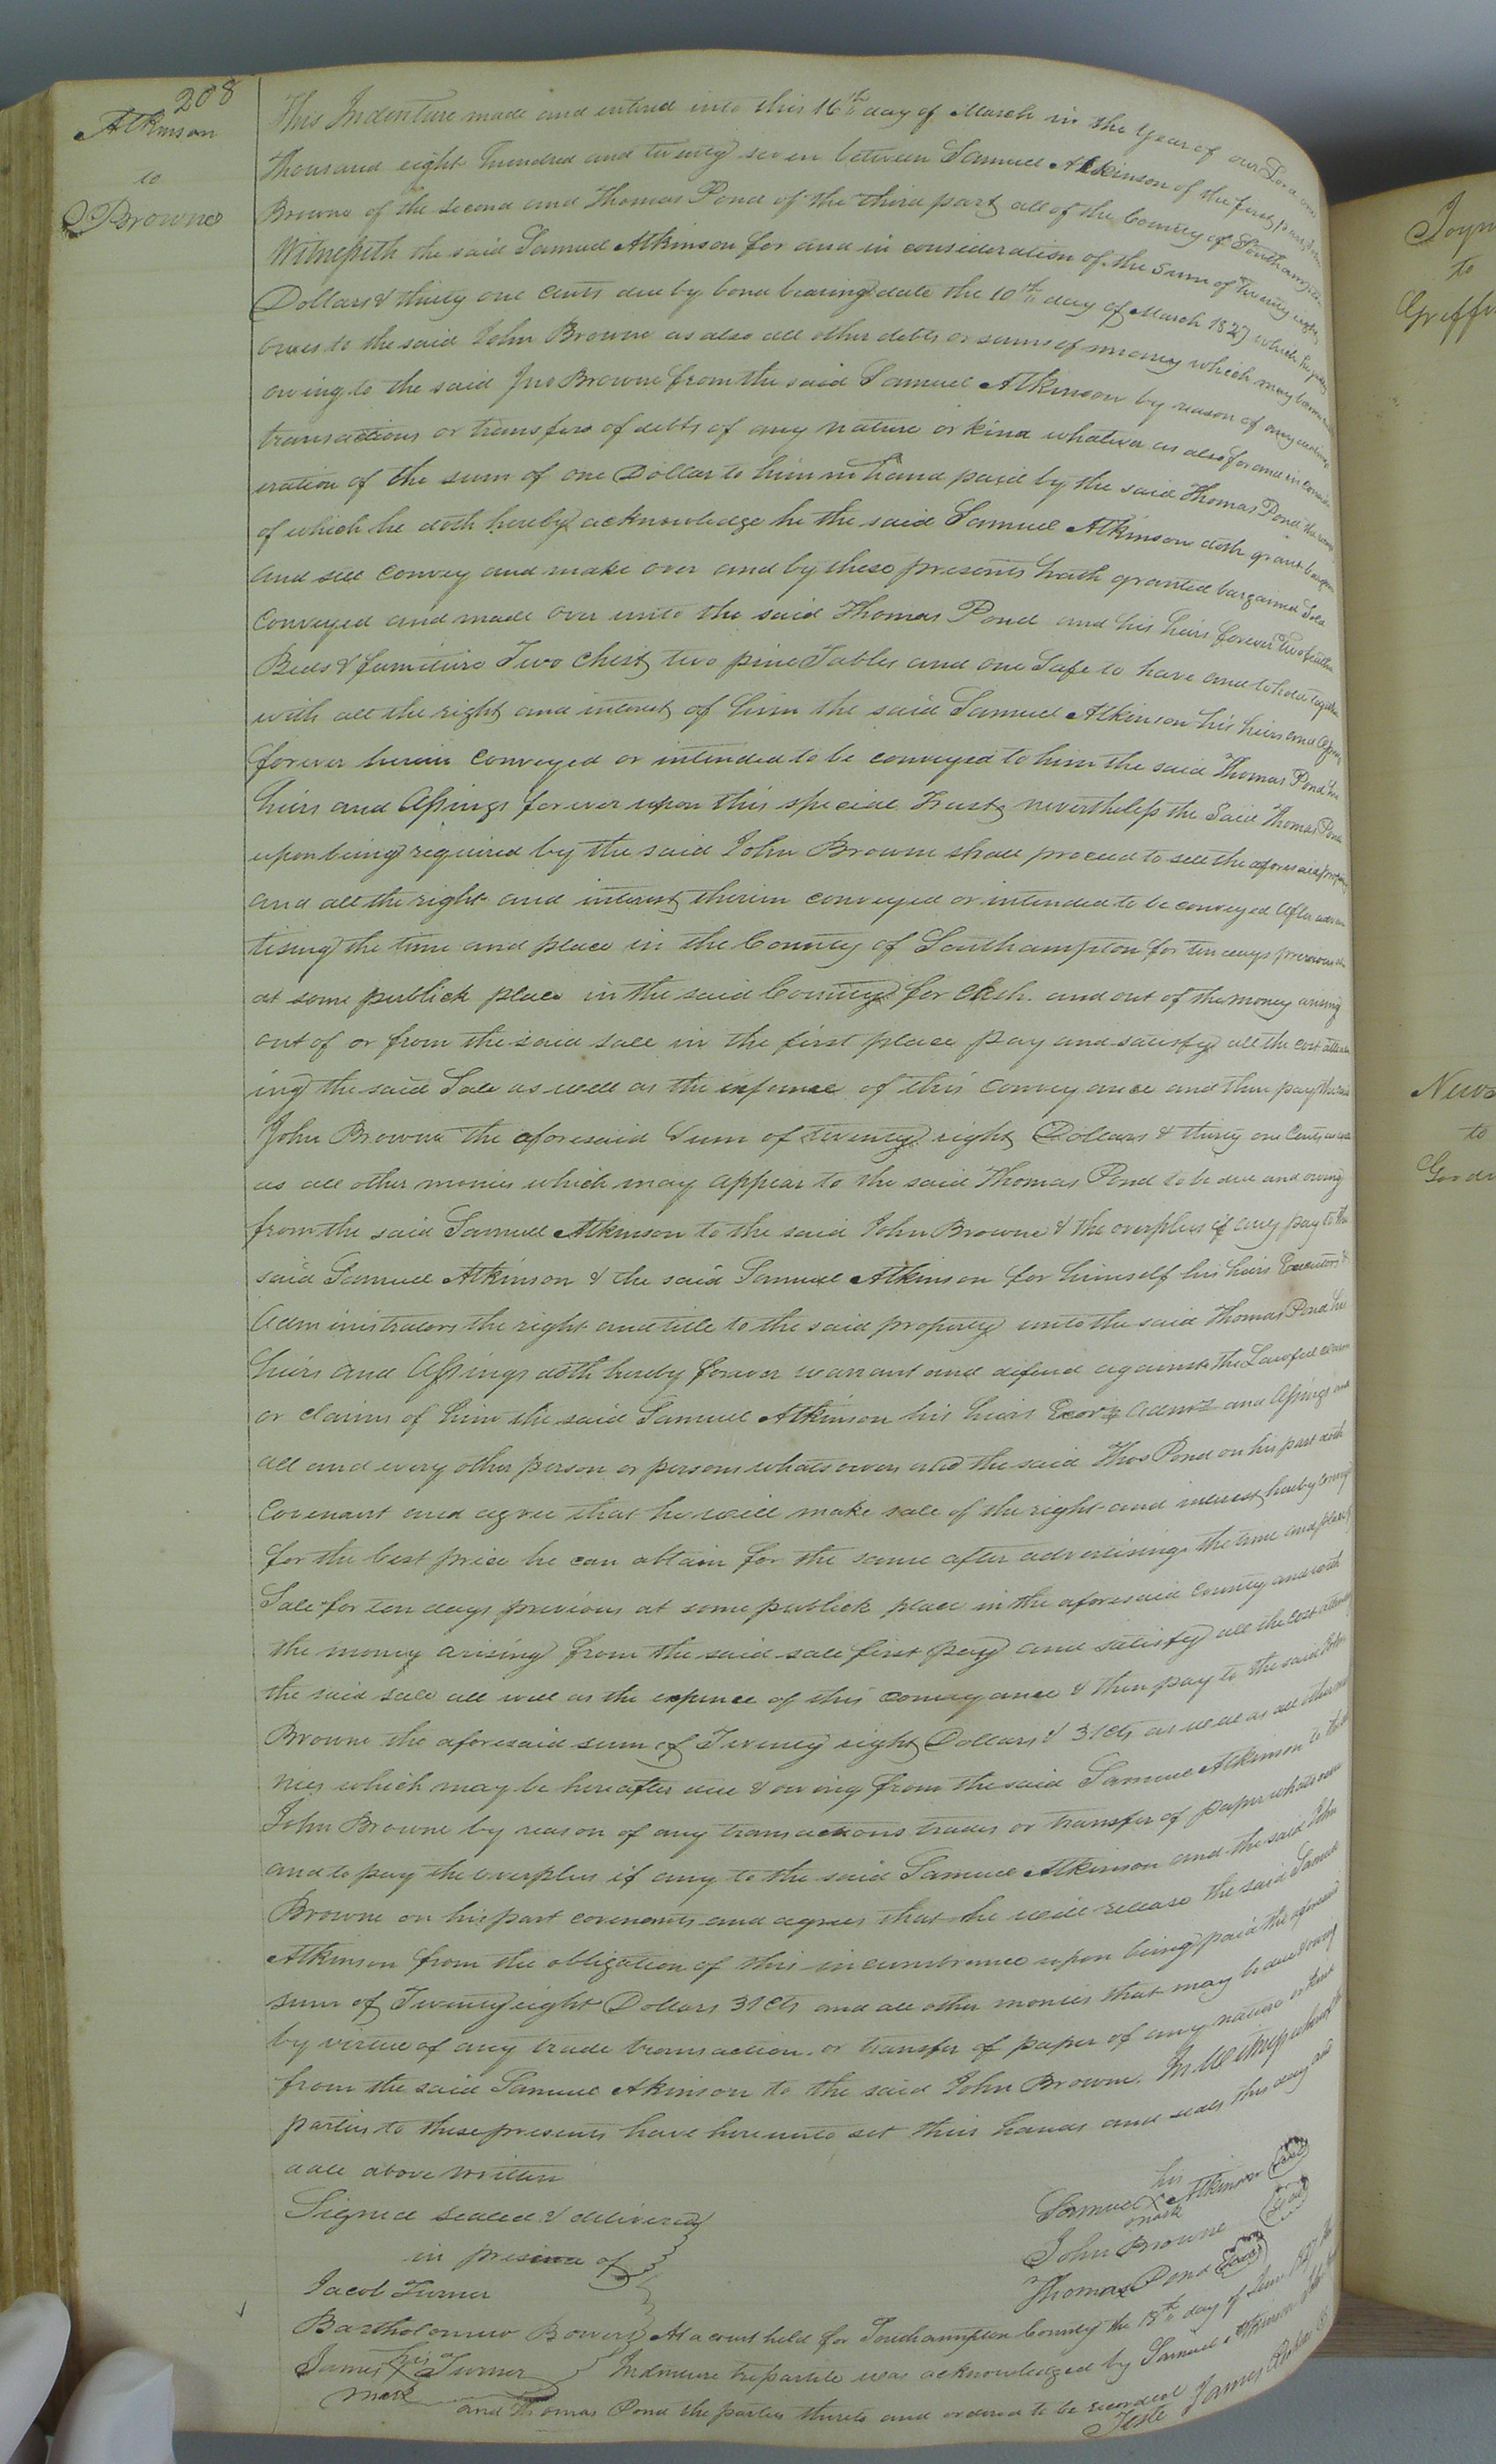 208
Atkinson
to
Browne
This Indenture made and entired into this 16th day of March in the Year of our Lord one
Thousand eight hundred and twenty seven between Samuel Atkinson of the first part John
Browne of the second and Thomas Pond of the third part all of the County of Southampton
Witnesseth the said Samuel Atkinson for and in consideration of the sum of Twenty eight
Dollars & thirty one cents due by bond bearing date the 10th day of March 1827 which he justly
owes to the said John Browne as also all other debts or sums of money which may
owing to the said Jno Browne from the said Samuel Atkinson by reason of any
transactions or transfers of debts of any nature or kind whatever as also for and in consid
eration of the sum of one Dollar to him in hand paid by the said Thomas Pond the
of which he doth hereby acknowledge he the said Samuel Atkinson doth grant bargain
and sell convey and make over and by these presents hath granted bargained Sold
Conveyed and made over unto the said Thomas Pond and his heirs forever two feather
Beds & furniture Two Chest, two pine Tables and one Safe to have and to hold together
with all the right and interest of him the said Samuel Atkinson his heirs and assigns
forever herein conveyed or intended to be conveyed to him the said Thomas Pond his
heirs and Assings forever upon this special Trust, nevertheless the Said Thomas Pond
upon being required by the said John Browne shall proceed to sell the aforesaid property
and all the right and interest therein conveyed or intended to be conveyed After adver
tising the time and place in the County of Southampton for ten days previous
at some publick place in the said County for Cash. and out of the money arising
out of or from the said sale in the first place pay and satisfy all the cost attend
ing the said Sale as well as the expence of this conveyance and then pay the said
John Browne the aforesaid sum of twenty eight Dollars & thirty one Cents as well
as all other monies which may appear to the said Thomas Pond to be due and owing
from the said Samuel Atkinson to the said John Browne & the overplus if any pay to the
said Samuel Atkinson & the said Samuel Atkinson for himself his heirs Executors &
Administrators the right and title to the said property unto the said Thomas Pond his
heirs and Assings doth hereby forever warrant and defend against the Lawful claim
or claims of him the said Samuel Atkinson his heirs Exors Admrs and Assings and
all and every other person or persons whatsoever and the said Thos Pond on his part doth
Covenant and agree that he will make sale of the right and interest hereby convey
for the best price he can attain for the same after advertising the time and place of
Sale for ten days previous at some publick place in the aforesaid County and with
the money arising from the said sale first pay and satisfy all the cost attending
the said sale all well as the expence of this conveyance & then pay to the said John
Browne the aforesaid sum of Twenty eight Dollars & 31 Cts as well as all other mo
nies which may be hereafter due & owing from the said Samuel Atkinson to the
John Browne by reason of any transactions trades or transfer of paper whatsoever
and to pay the overplus if any to the said Samuel Atkinson and the said John
Browne on his part covenants and agrees that he will release the said Samuel
Atkinson from the obligation of this incumbrance upon being paid the aforesaid
sum of Twenty eight Dollars 31 Cts and all other monies that may be due & owing
by virtue of any trade transaction or transfer of paper of any nature or kind
from the said Samuel Akinson to the said John Browne. In Witness whereof the
parties to these presents have hereunto set their hands and seals this day and
date above written
Signed sealed & delivered
in presence of
Jacob Turner
Bartholomew Bowers
James his Turner
mark
his
Samuel X Atkinson Seal
mark
John Browne Seal
Thomas Pond Seal
At a court held for Southampton County the 18th day of June 1827
Indenture tripartite was acknowledged by Samuel Atkinson
and Thomas Pond the parties thereto and ordered to be recorded
Teste James
Joyn
to
Griffi
News
to
Goodw